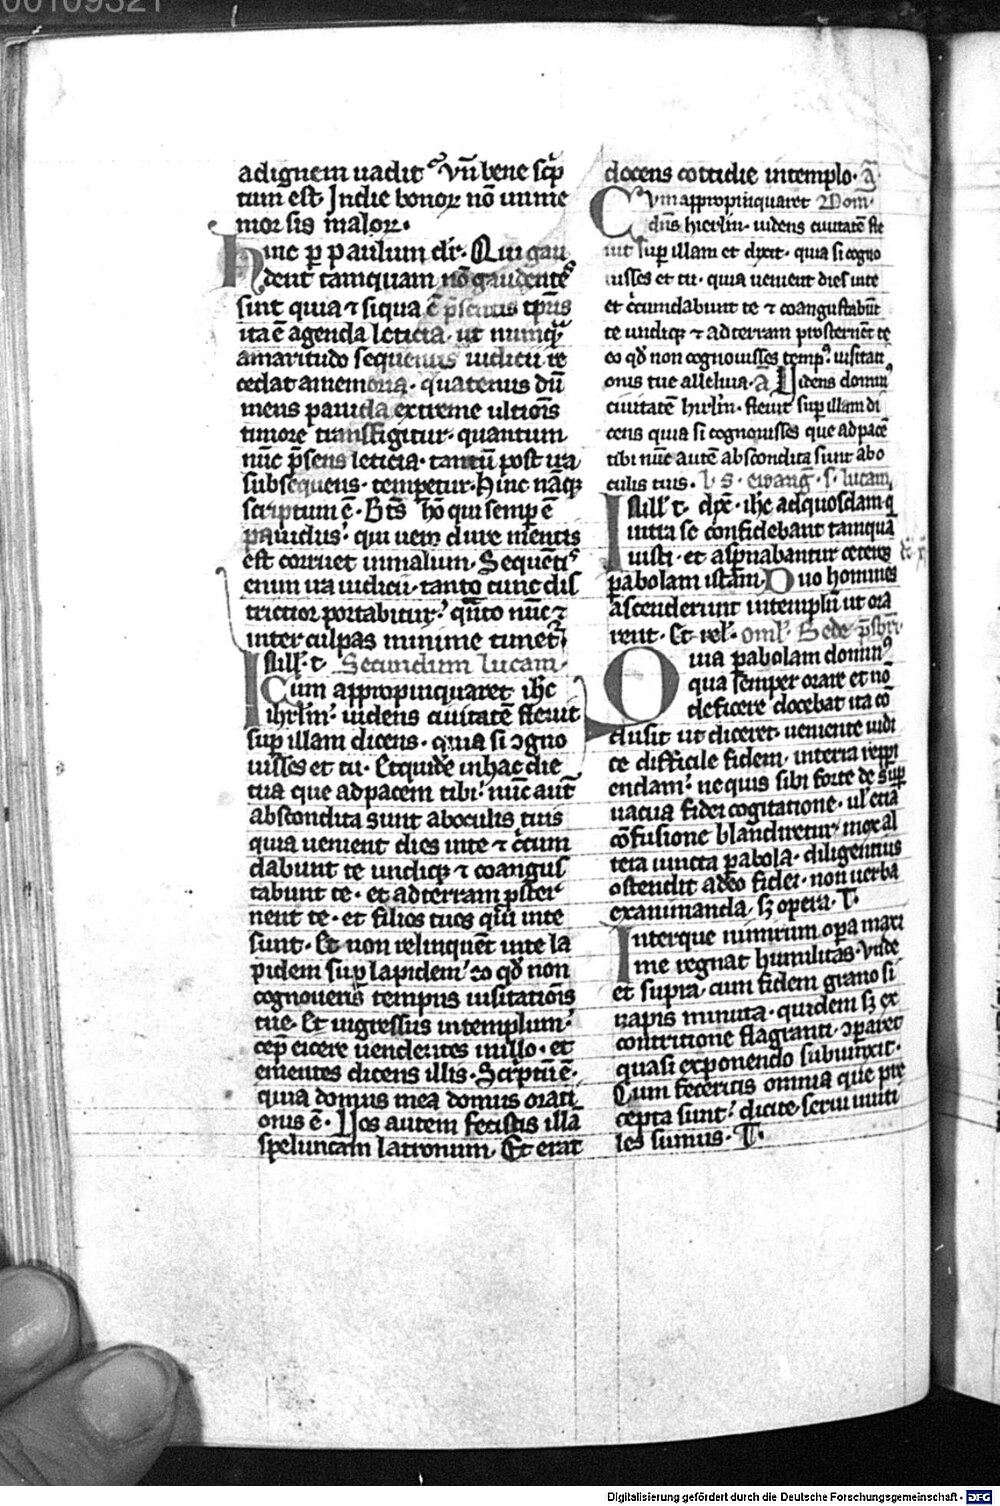 00109321
ad ignem uadit. Vn̄ bene sc̄p
tum est. In die bonoꝝ nō inme
mor sis maloꝝ.
hinc ꝑ paulum dr̄. Qui gau
dent tamquam nō gaudentes
sint quia ⁊ siqua ē p̄sentis tp̄ris
ita ē agenda leticia. ut nūnq̄
amaritudo sequentis iudicii re
cedat a memoria. quatenus dū
mens pauida extreme ultiōis
timore transfigitur. quantum
nūc p̄sens leticia. tantū post ira
subsequens. tempetur. Hinc nāqꝫ
scriptum ē. Bt̄s hō qui semp̄ ē
pauidus. qui ueꝝ dure mentis
est corruet in malum. Sequētis
enim ira iudicii. tanto tunc dis
trictior portabitur. q̄nto nūc ⁊
inter culpas minime timet̄.
In ill. t. Secundum lucam.
Cum appropinquaret ih̄c
ih̄rlm̄. uidens ciuitatē fleuit
suꝑ illam dicens. quia si ꝯgno
uisses et tu. Et quidē in hac die
tua que ad pacem tibi. nūc aut̄
abscondita sunt ab oculis tuis
quia uenient dies in te ⁊ c̄cum
dabunt te undiqꝫ ⁊ coangus
tabunt te. et ad terram ꝓster
nent te. et filios tuos qui in te
sunt. Et non relinquēt in te la
pidem suꝑ lapidem. eo qd̄ non
cognoueris tempus uisitatiōis
tue. Et ingressus in templum.
cep̄ eicere uendentes in illo. et
ementes dicens illis. Sc̄ptū ē.
quia domus mea domus orati
onis ē. Vos autem fecistis illā
speluncam latronum. Et erat
docens cottidie in templo. a͞
Cum appropinquaret Dom.
dn̄s hierlm̄. uidens ciuitatē fle
uit suꝑ illam et dixit. quia si cogno
uisses et tu. quia uenient dies in te
et c̄cundabunt te ⁊ coangustabūt
te undiqꝫ ⁊ ad terram prosternēt te
eo qd̄ non cognouisses temp̄. uisitati
onis tue alleluia. a͞ Videns dominꝰ
ciuitatē hirlm̄. fleuit suꝑ illam di
cens quia si cognouisses que ad pacē
tibi nūc autē abscondita sunt ab o
culis tuis. ewanḡ. s. lucam
In ill. t. dx̄. ih̄c ad quosdam q̄
in se confidebant tamquā
iusti. et asp̄nabantur ceteros
ꝑabolam istam. Duo homines
ascenderunt in templū ut ora
rent. Et rel. oml̄. Bede p̄sb̄ri.
Quia ꝑabolam dominꝰ
qua semper orare et nō
deficere docebat ita cō
clusit ut diceret. ueniente iudi
ce difficile fidem. in terra repꝑi
endam. ne quis sibi forte de suꝑ
uacua fidei cogitatione. uł etiā
cōfusione blandiretur. mox al
tera iuncta ꝑabola. diligentius
ostendit a deo fidei. non uerba
examinanda. sꝫ opera. T.
Inter que nimirum oꝑa maxi
me regnat humilitas. Vnde
et supra. cum fidem grano si
napis minuta. quidem sꝫ ex
contritione flagranti. ꝯparet
quasi exponendo subiunxit.
Cum feceritis omnia que pre
cepta sunt. dicite. serui inuti
les sumus. T.
Digitalisierung gefördert durch die Deutsche Forschungsgemeinschaft - DFG